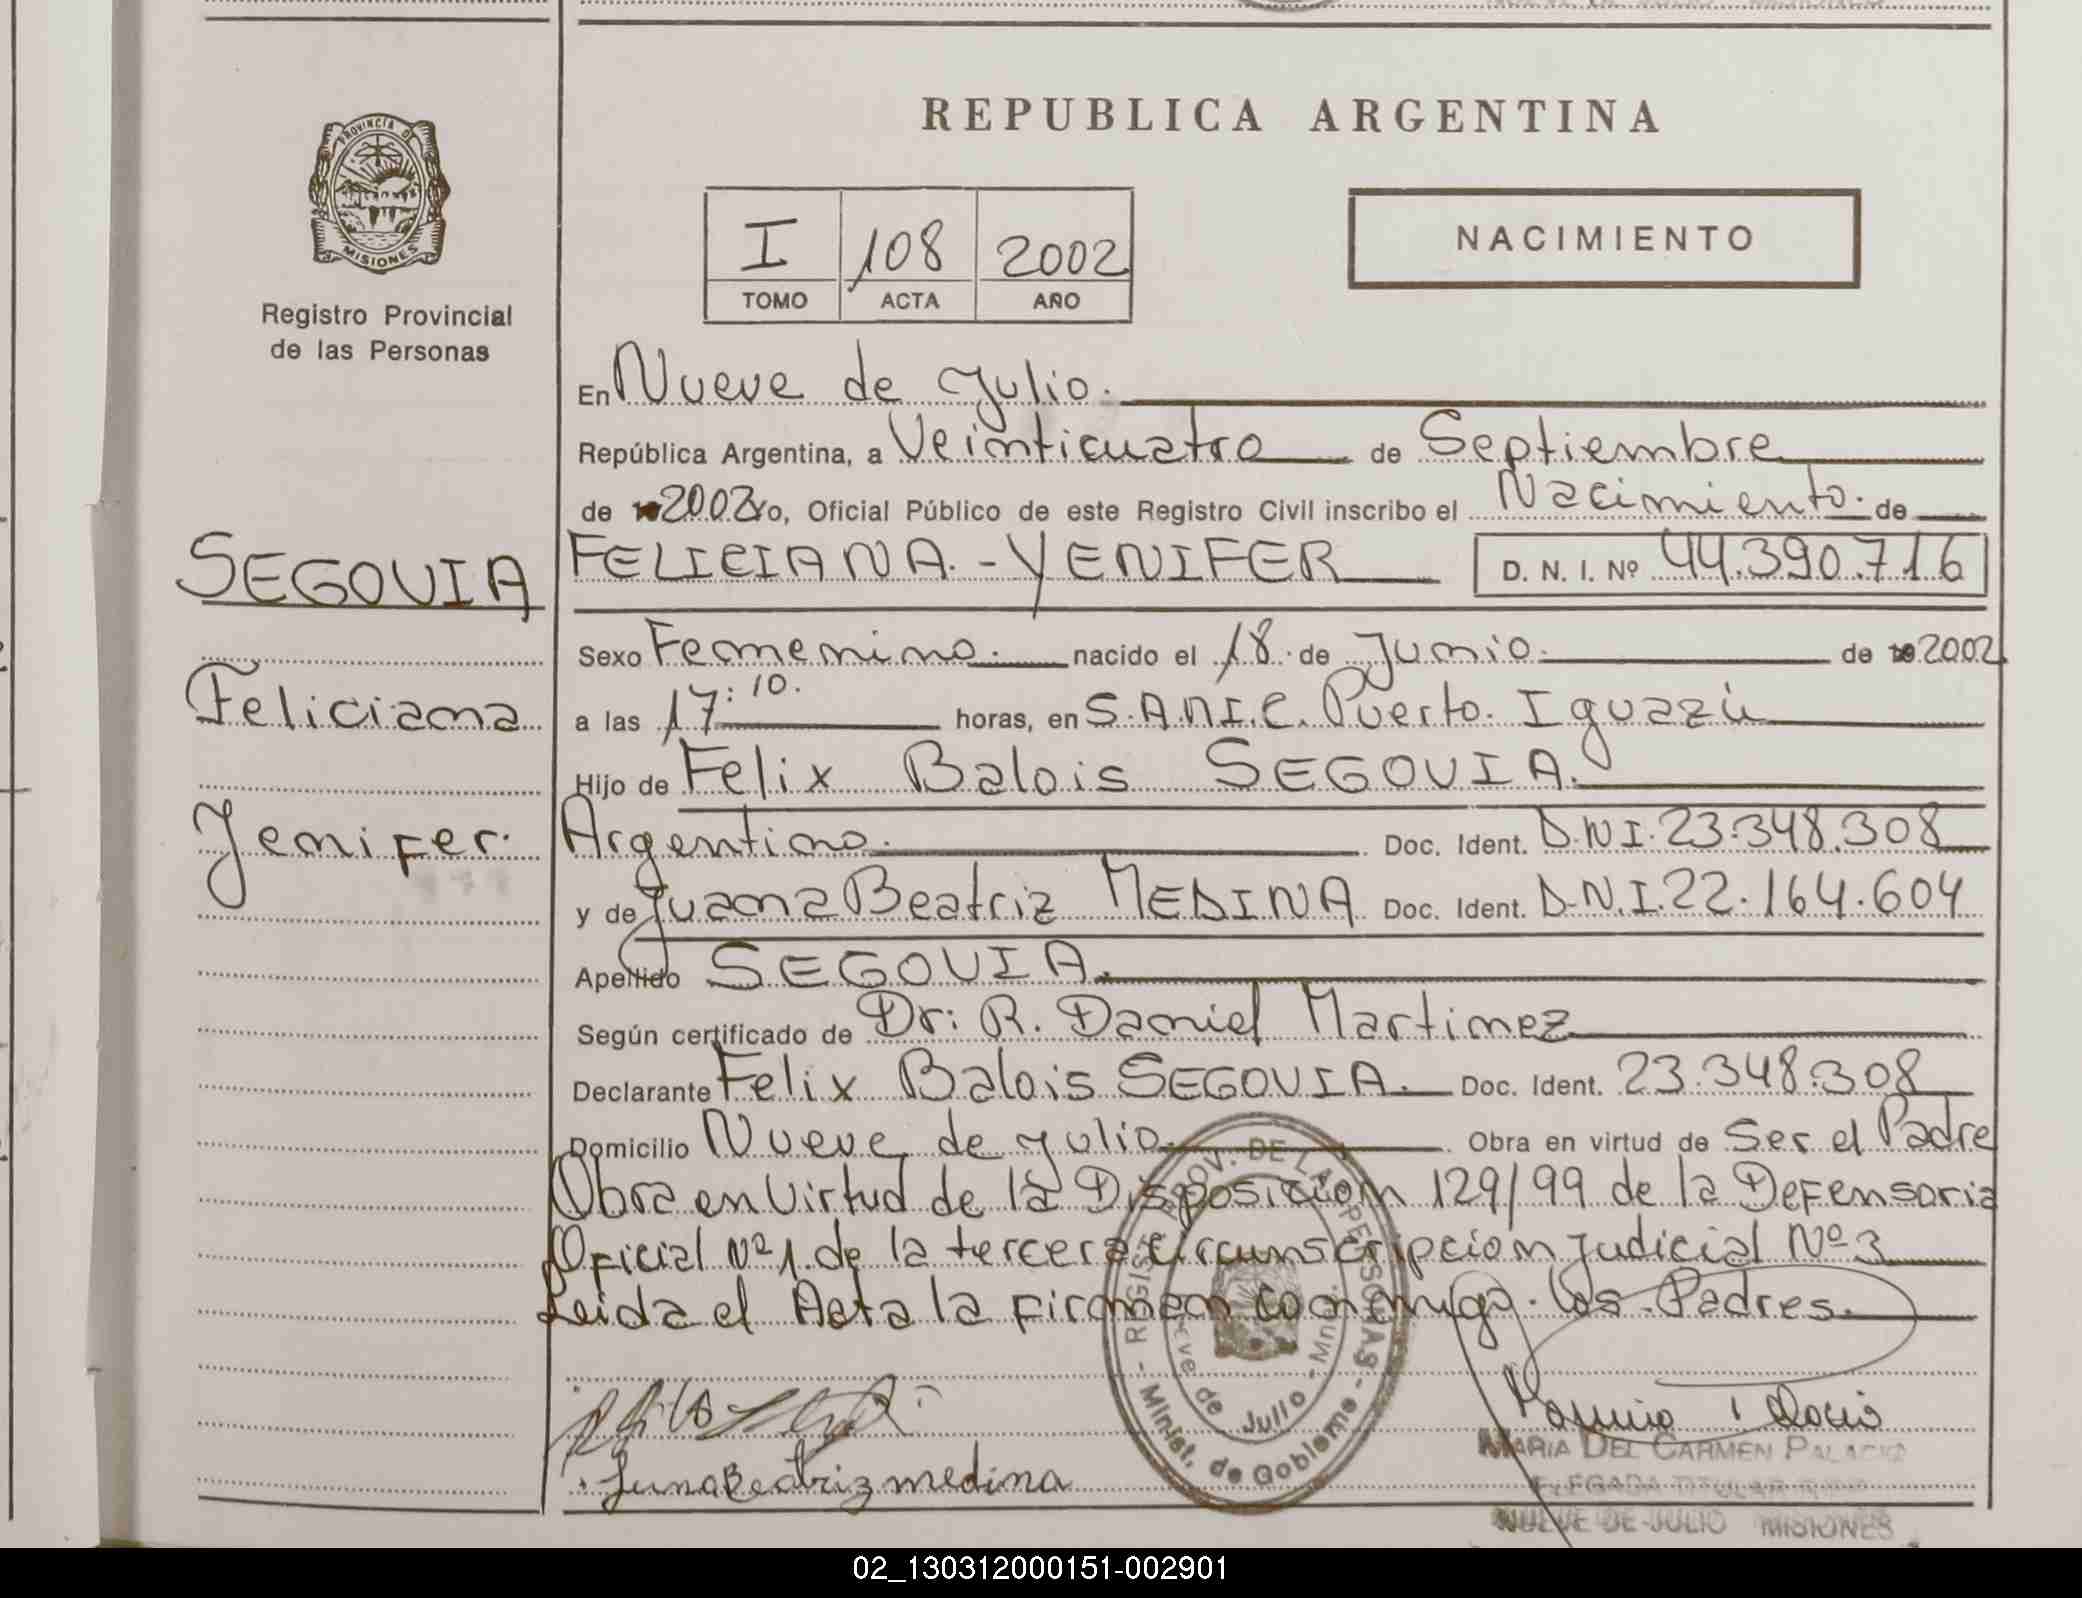 REPUBLICA ARGENTINA
PROVINCIA DE MISIONES
Registro Provincial
de las Personas
I 108 2002
TOMO ACTA AÑO
NACIMIENTO
En Nueve de Julio.
República Argentina, a Veinticuatro de Septiembre
de 2002 Yo, Oficial Público de este Registro Civil inscribo el Nacimiento. de
SEGOVIA
FELICIANA.-YENIFER D. N. I. Nº 44.390.716
Sexo Femenino. nacido el 18. de Junio. de 2002
Feliciana
a las 17:10. horas, en S.A.M.I.C. Puerto. Iguazú
Hijo de Felix Balois SEGOVIA.
Yenifer.
Argentino. Doc. Ident. D.N.I. 23.348.308
y de Juana Beatriz MEDINA Doc. Ident. D.N.I. 22.164.604
Apellido SEGOVIA.
Según certificado de Dr: R. Daniel Martinez
Declarante Felix Balois SEGOVIA. Doc. Ident. 23.348.308
Domicilio Nueve de Julio. Obra en virtud de Ser el Padre
Obra en Virtud de la Disposición 129/99 de la Defensoria
Oficial Nº1. de la tercera circunscripcion judicial Nº 3
Leida el Acta la firman conmigo. los Padres.
Juna Beatriz medina
- REGIST. PROV. DE LAS PERSONAS -
Nueve de Julio - Mnes.
Minist. de Gobierno
MARIA DEL CARMEN PALACIO
DELEGADA TITULAR
NUEVE DE JULIO MISIONES
02_130312000151-002901